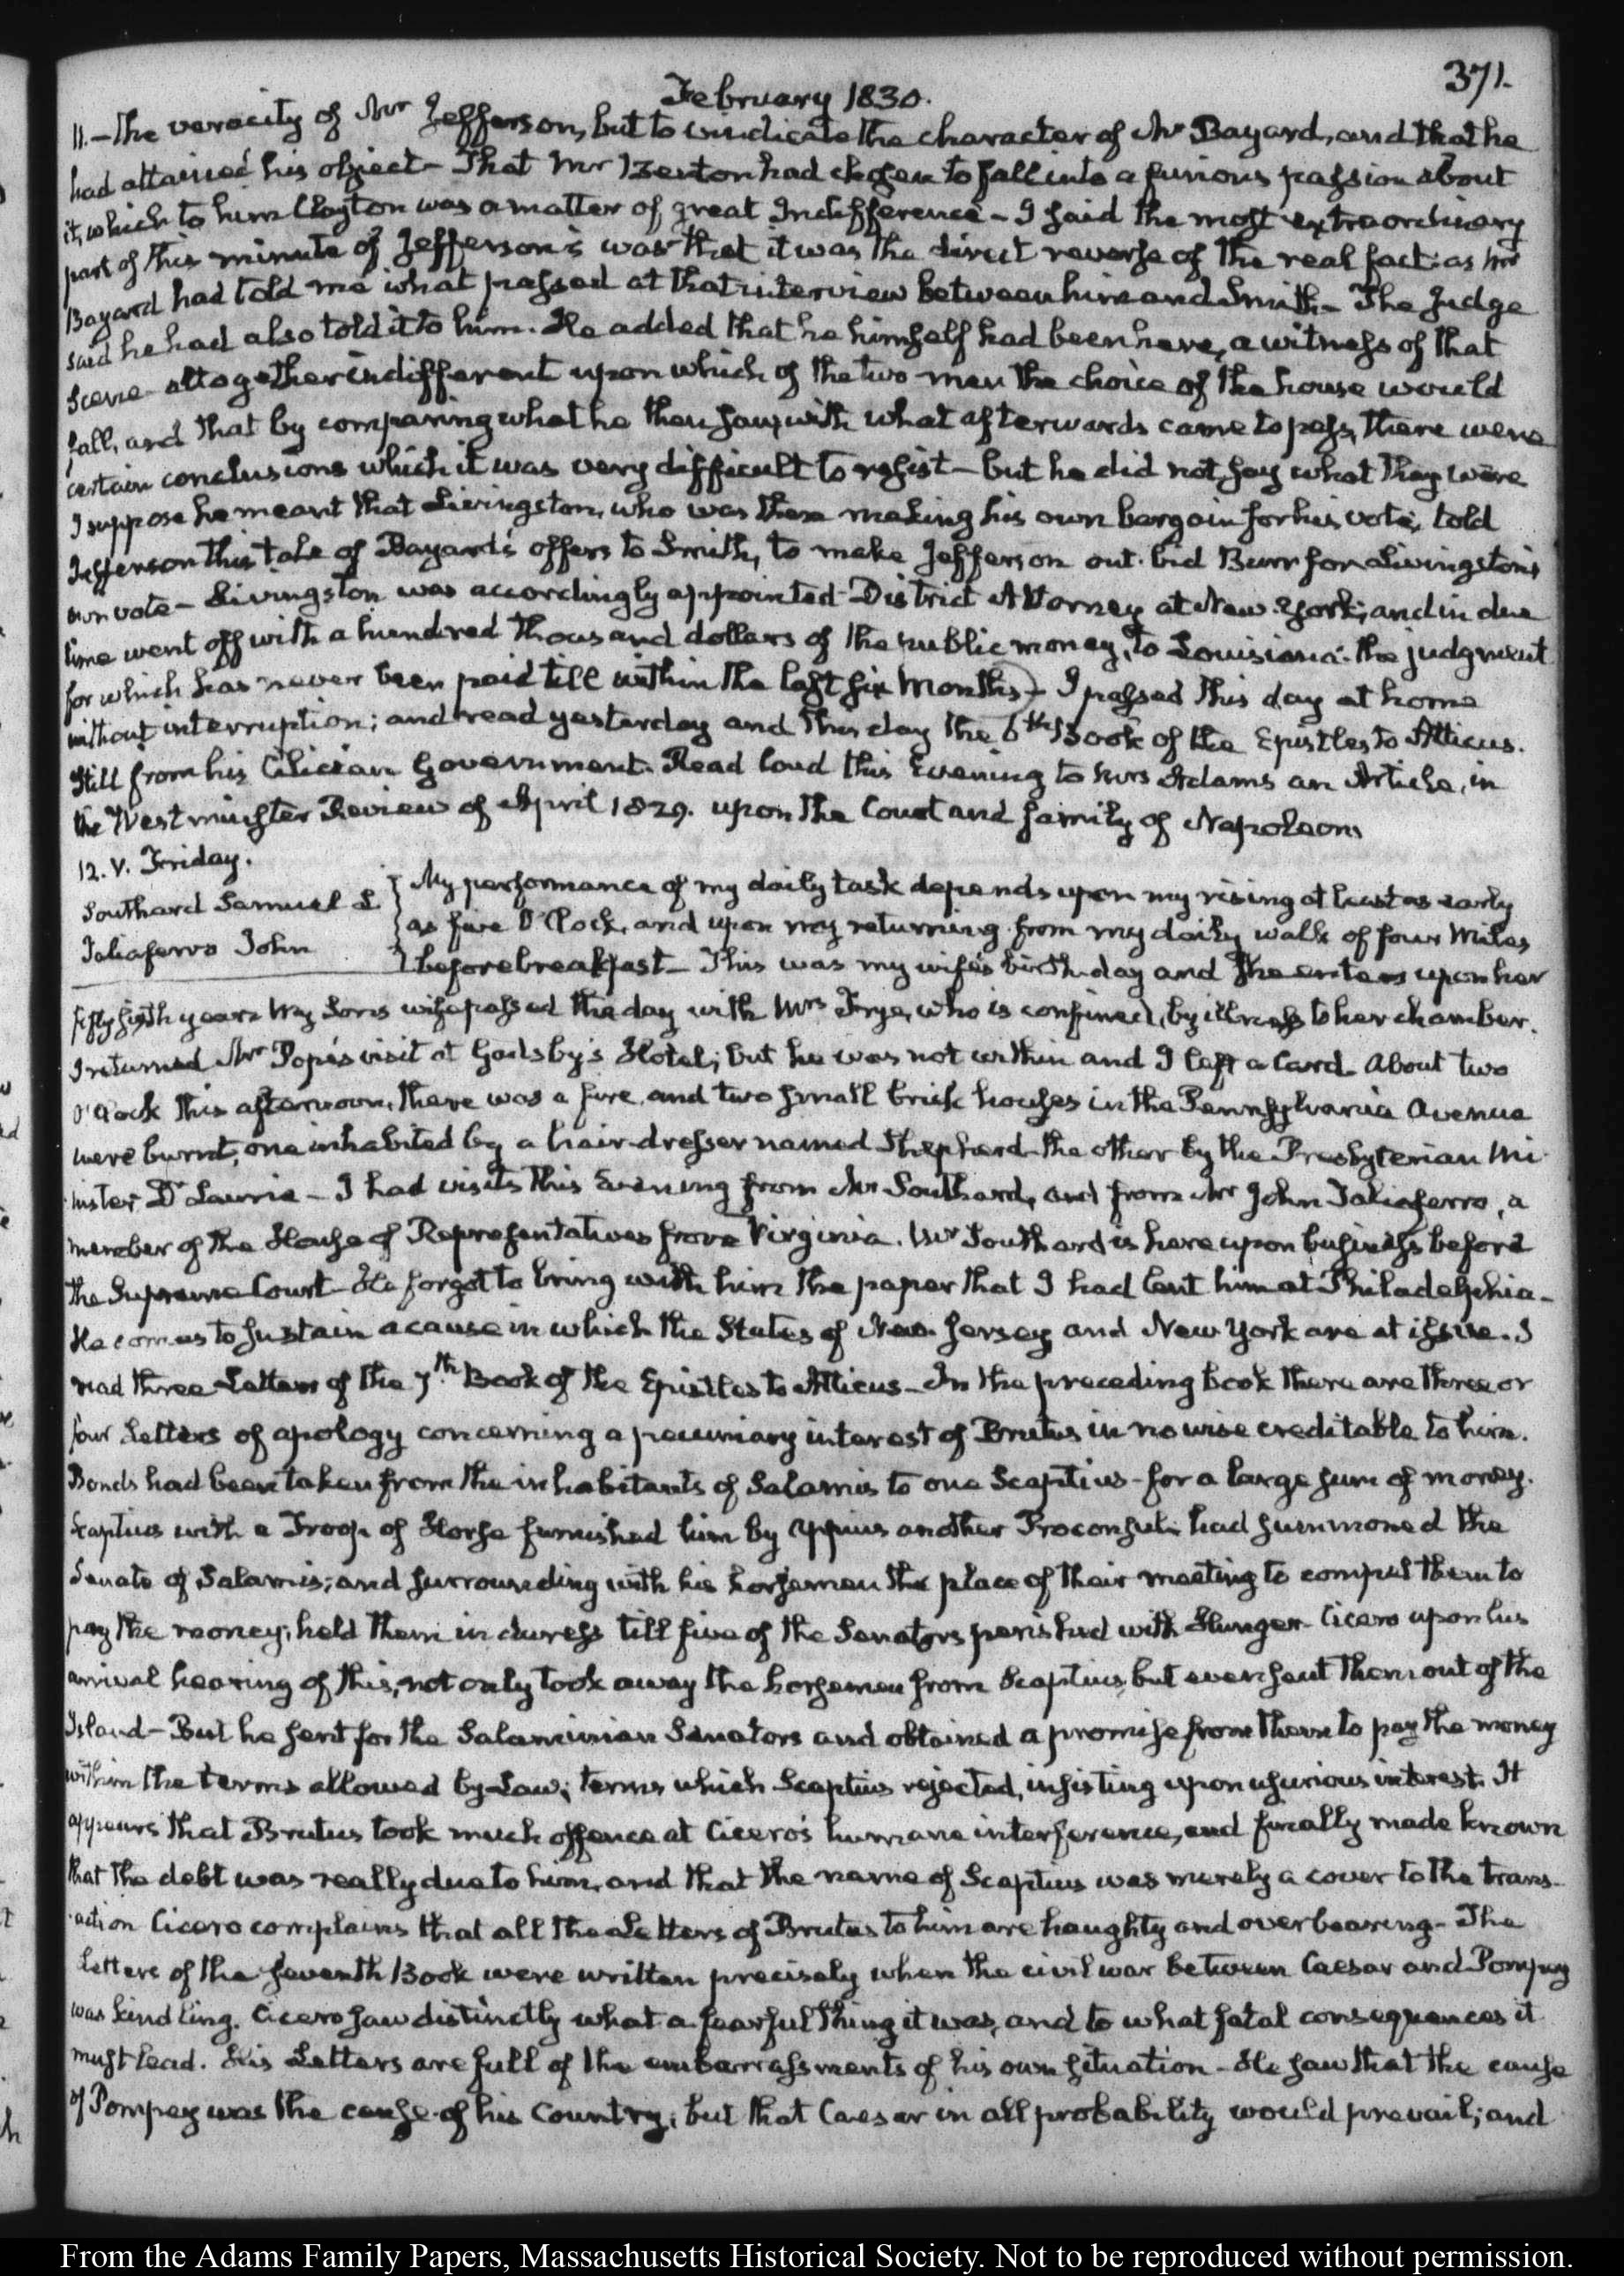 371.
February 1830.
11.—the veracity of Mr Jefferson, but to vindicate the character of Mr Bayard, and that he
had attained his object— That Mr Benton had chosen to fall into a furious passion about
it, which to him Clayton was a matter of great Indifference— I said the most extraordinary
part of this minute of Jefferson's was that it was the direct reverse of the real fact: as Mr
Bayard had told me what passed at that interview between him and Smith— The Judge
said he had also told it to him. He added that he himself had been here, a witness of that
scene altogether indifferent upon which of the two men the choice of the house would
fall, and that by comparing what he then saw, with what afterwards came to pass, there were
certain conclusions which it was very difficult to resist— but he did not say what they were
I suppose he meant that Livingston, who was then making his own bargain for his vote, told
Jefferson this tale of Bayard's offers to Smith, to make Jefferson out-bid Burr for Livingston's
own vote— Livingston was accordingly appointed District Attorney at New-York; and in due
time went off with a hundred thousand dollars of the public money, to Louisiana: the judgment
for which has never been paid till within the last six Months)— I passed this day at home
without interruption; and read yesterday and this day the 6th Book of the Epistles to Atticus.
Still from his Cilician Government. Read loud this Evening to Mrs Adams an Article, in
the Westminster Review of April 1829. upon the Court and family of Napoleon.
12. V. Friday.
Southard Samuel L
Taliaferro John
My performance of my daily task depends upon my rising at least as early
as five O'Clock, and upon my returning from my daily walk of four Miles
before breakfast— This was my wife's birth-day and she enters upon her
fifty sixth year. My Sons wife passed the day with Mrs Frye, who is confined, by illness to her chamber.
I returned Mr Pope's visit at Gadsby's Hotel; but he was not within and I left a Card. About two
O'Clock this afternoon, there was a fire, and two small brick houses in the Pennsylvania Avenue
were burnt; one inhabited by a hair-dresser named Shepherd— the other by the Presbyterian Mi-
nister Dr Laurie— I had visits this Evening from Mr Southard, and from Mr John Taliaferro, a
member of the House of Representatives from Virginia. Mr Southard is here upon business before
the Supreme Court— He forgot to bring with him the paper that I had lent him at Philadelphia—
He comes to sustain a cause in which the States of New-Jersey and New York are at issue. I
read three Letters of the 7.th Book of the Epistles to Atticus— In the preceding book there are three or
four Letters of apology concerning a pecuniary interest of Brutus in no wise creditable to him.
Bonds had been taken from the inhabitants of Salamis to one Scaptius— for a large sum of money.
Scaptius with a Troop of Horse furnished him by Appius another Proconsul; had summoned the
Senate of Salamis; and surrounding with his horsemen the place of their meeting to compel them to
pay the money; held them in duress till five of the Senators perished with Hunger— Cicero upon his
arrival hearing of this, not only took away the horsemen from Scaptius, but even sent them out of the
Island— But he sent for the Salaminian Senators and obtained a promise from them to pay the money
within the terms allowed by Law; terms which Scaptius rejected, insisting upon usurious interest. It
appears that Brutus took much offence at Cicero's humane interference, and finally made known
that the debt was really due to him, and that the name of Scaptius was merely a cover to the trans-
action— Cicero complains that all the Letters of Brutus to him are haughty and overbearing— The
Letters of the seventh Book were written precisely when the civil war between Caesar and Pompey
was kindling. Cicero saw distinctly what a fearful thing it was, and to what fatal consequences it
must lead. His Letters are full of the embarrassments of his own situation— He saw that the cause
of Pompey was the cause of his Country; but that Caesar in all probability would prevail; and
From the Adams Family Papers, Massachusetts Historical Society. Not to be reproduced without permission.